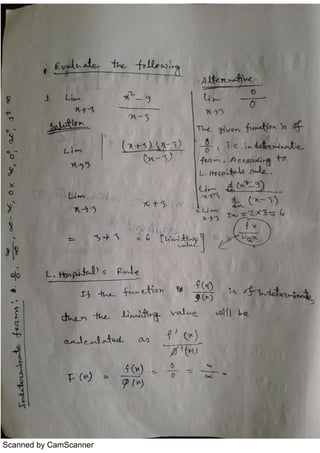 Evaluate the following
1. Lim x→3 x²-9 / x-3
Solution
Lim x→3 (x+3)(x-3) / (x-3)
Lim x→3 x+3
= 3+3 = 6 [Limiting value]
Alternative
Lim x→3 0/0
The given function is of
0/0, i.e. indeterminate
form. According to
L. Hospital's rule.
Lim x→3 d/dx (x²-9) / d/dx (x-3)
= Lim x→3 2x = 2×3 = 6
L. Hospital's Rule
If the function is f(x)/ø(x) is of Indeterminate,
then the limiting value will be
calculated as f'(x)/ø'(x)
F(x) = f(x)/ø(x) = 0/0 =
Indeterminate forms:
Scanned by CamScanner